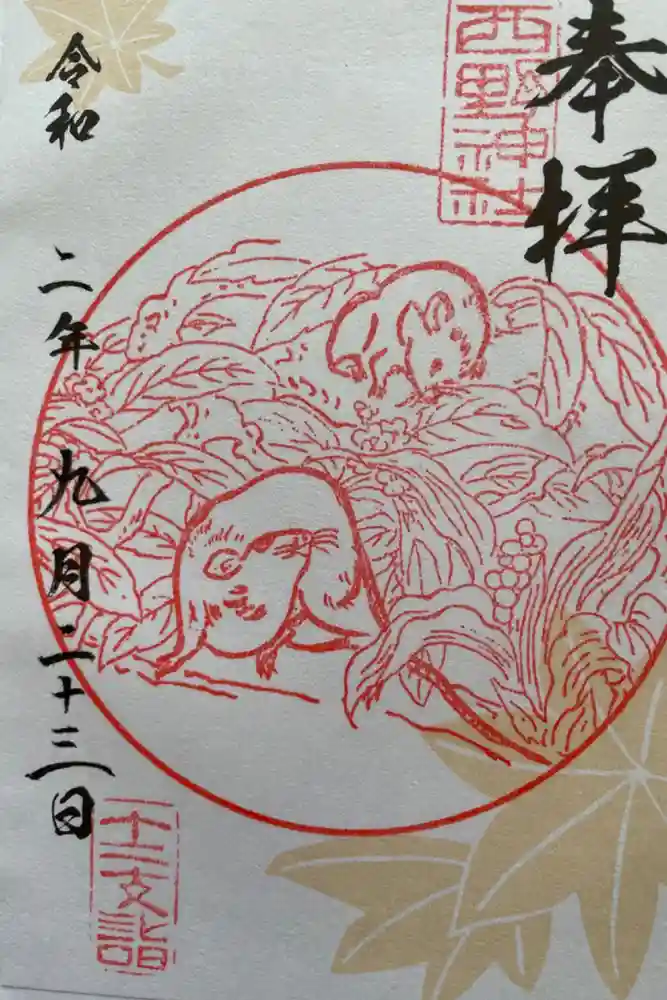 奉拝
西野神社
令和二年九月二十三日
十二支詣